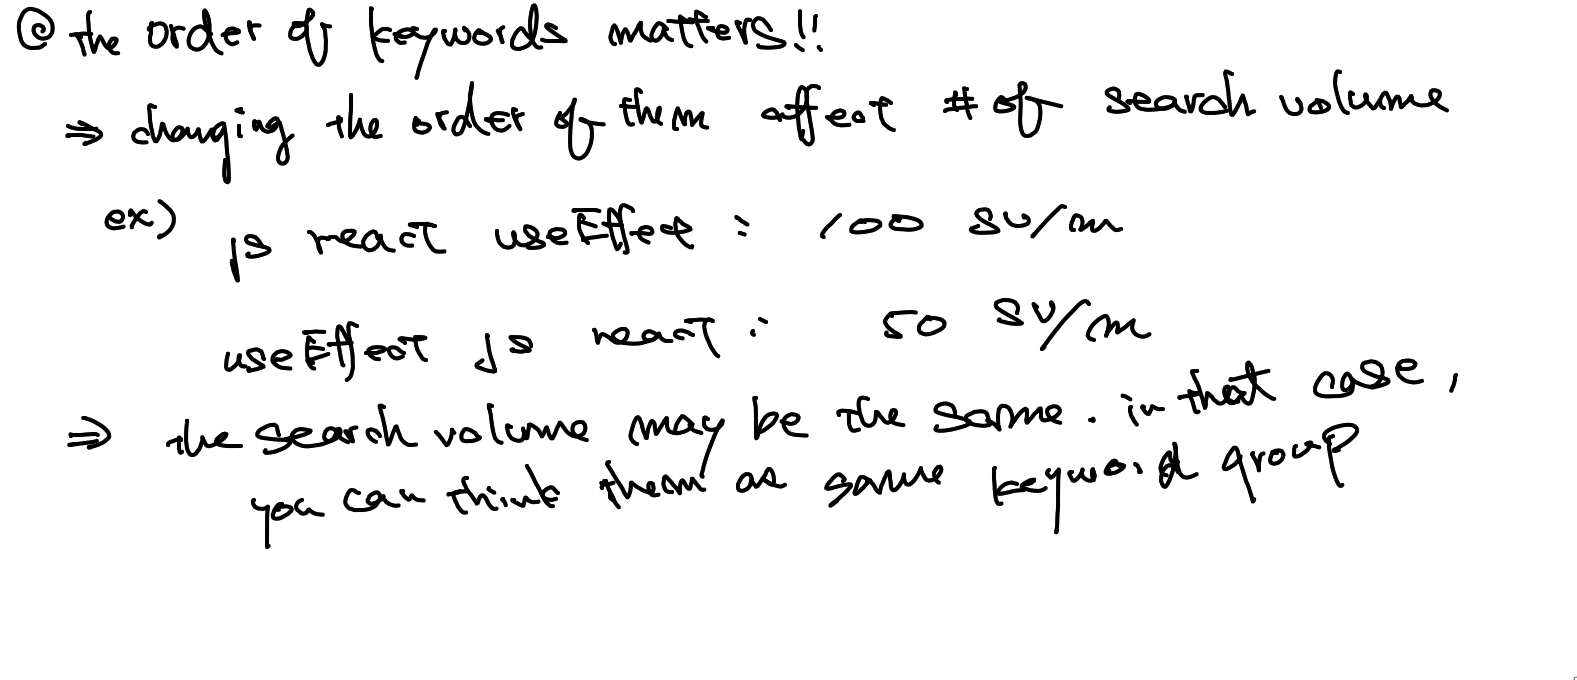 @ the order of keywords matters!!
⇒ changing the order of them affect # of search volume
ex)
js react useEffect : 100 sv/m
useEffect js react : 50 sv/m
⇒ the search volume may be the same. in that case,
you can think them as same keyword group